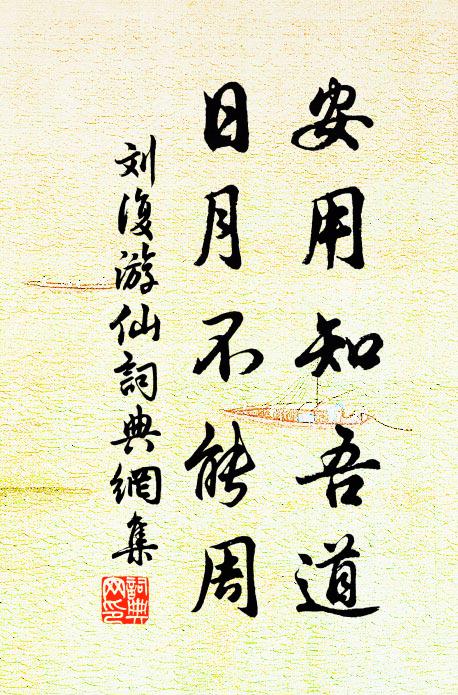 安用知吾道
日月不能周
刘復游仙詞典網集
詞典
网印